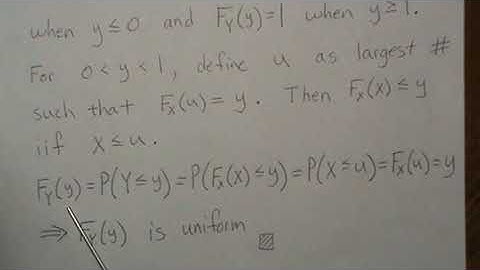 when y ≤ 0 and F_Y(y) = 1 when y ≥ 1.
For 0 < y < 1, define u as largest #
such that F_X(u) = y. Then F_X(x) ≤ y
iif x ≤ u.
F_Y(y) = P(Y ≤ y) = P(F_X(X) ≤ y) = P(X ≤ u) = F_X(u) = y
⇒ F_Y(y) is uniform ▨